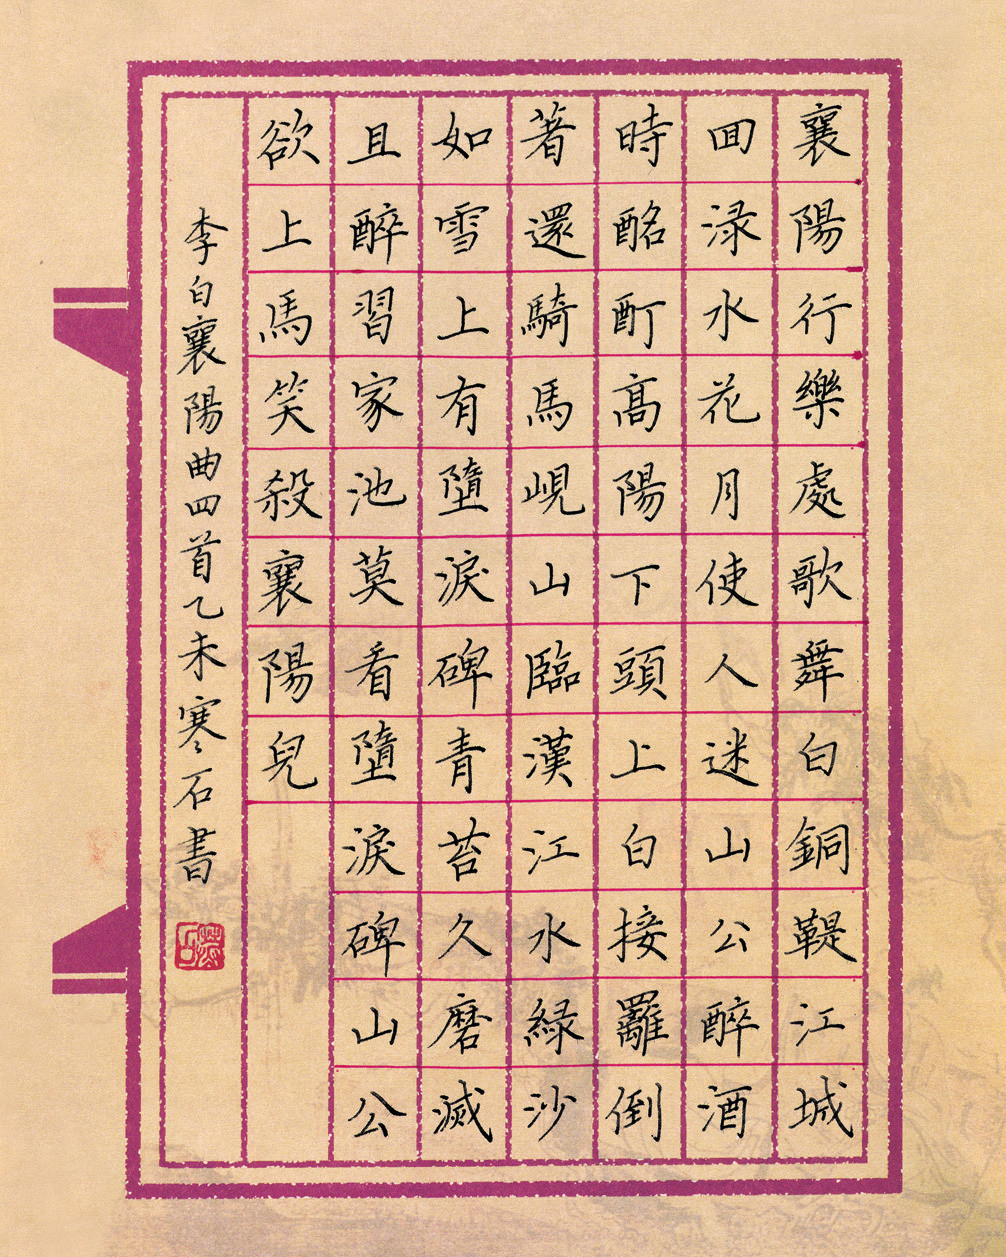 襄陽行樂處歌舞白銅鞮江城
回渌水花月使人迷山公醉酒
時酩酊高陽下頭上白接䍦倒
著還騎馬峴山臨漢江水緑沙
如雪上有墮淚碑青苔久磨滅
且醉習家池莫看墮淚碑山公
欲上馬笑殺襄陽兒
李白襄陽曲四首乙未寒石書
寒石